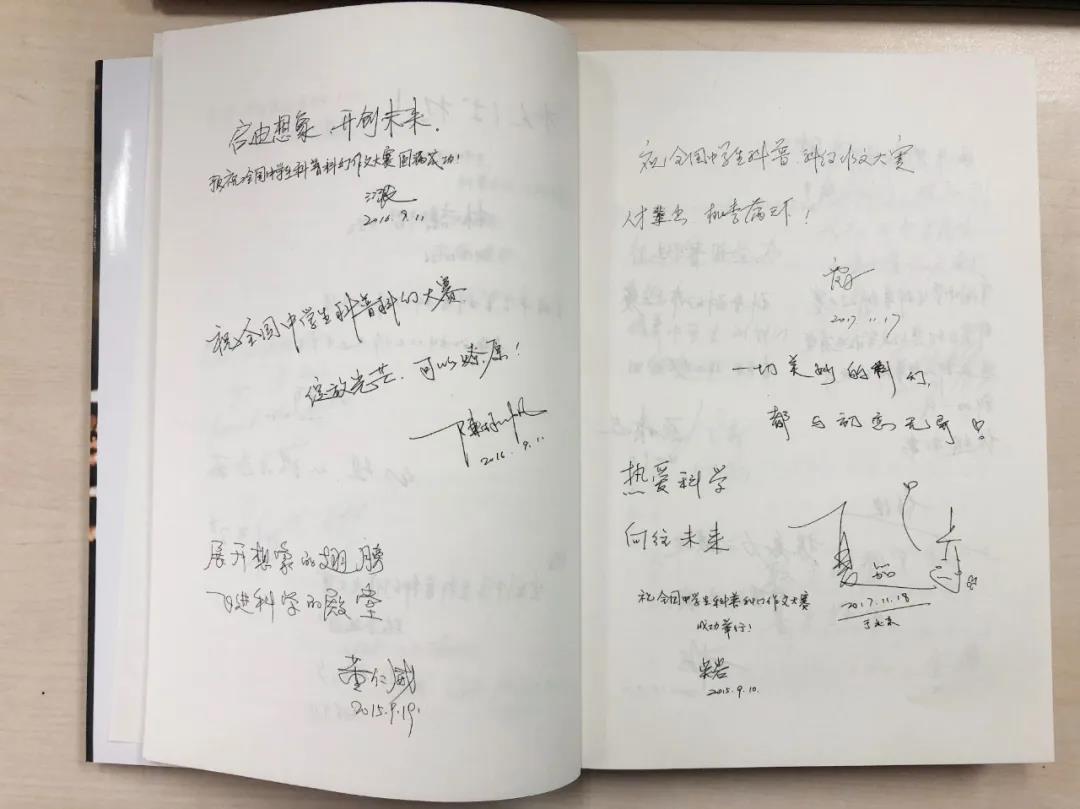 启迪想象，开创未来.
预祝全国中学生科普科幻作文大赛圆满成功！
江波
2016.9.11
祝全国中学生科普科幻大赛
绽放光芒，可以燎原！
陈楸帆
2016.9.11
展开想象的翅膀
飞进科学的殿堂
董仁威
2015.9.19.
祝全国中学生科普科幻作文大赛
人才辈出 桃李满天下！
2017.11.17
一切美妙的科幻，
都与初恋无异！
热爱科学
向往未来
夏笳
2017.11.18
于北京
祝全国中学生科普科幻作文大赛
成功举行！
吴岩
2015.9.10.